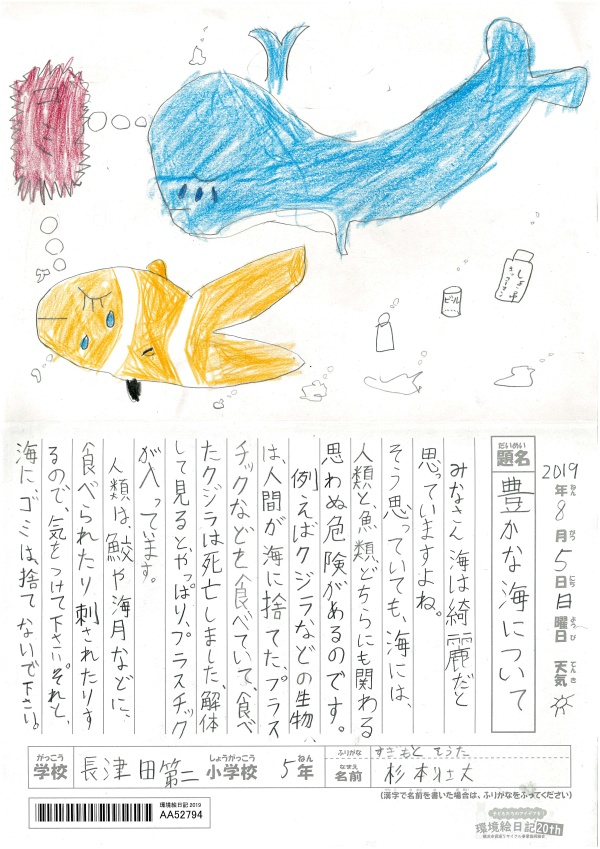 ゴミ
ビール
しょうゆ
2019年8月5日日曜日 天気
ねん
がつ
にち
ようび
てんき
だいめい
題名
豊かな海について
みなさん海は綺麗だと
思っていますよね。
そう思っていても、海には、
人類と、魚類どちらにも関わる
思わぬ危険があるのです。
例えばクジラなどの生物
は、人間が海に捨てた、プラス
チックなどを食べていて、食べ
たクジラは死亡しました、解体
して見ると、やっぱり、プラスチック
が入っています。
人類は、鮫や海月などに、
食べられたり刺されたりす
るので、気をつけて下さい。それと、
海にゴミは、捨てないで下さい。
がっこう
学校
長津田第二
しょうがっこう
小学校
5年
ねん
ふりがな
すぎもと そうた
なまえ
名前
杉本
(漢字で名前を書いた場合は、ふりがなをふってください)
環境絵日記 2019
AA52794
環境絵日記20th